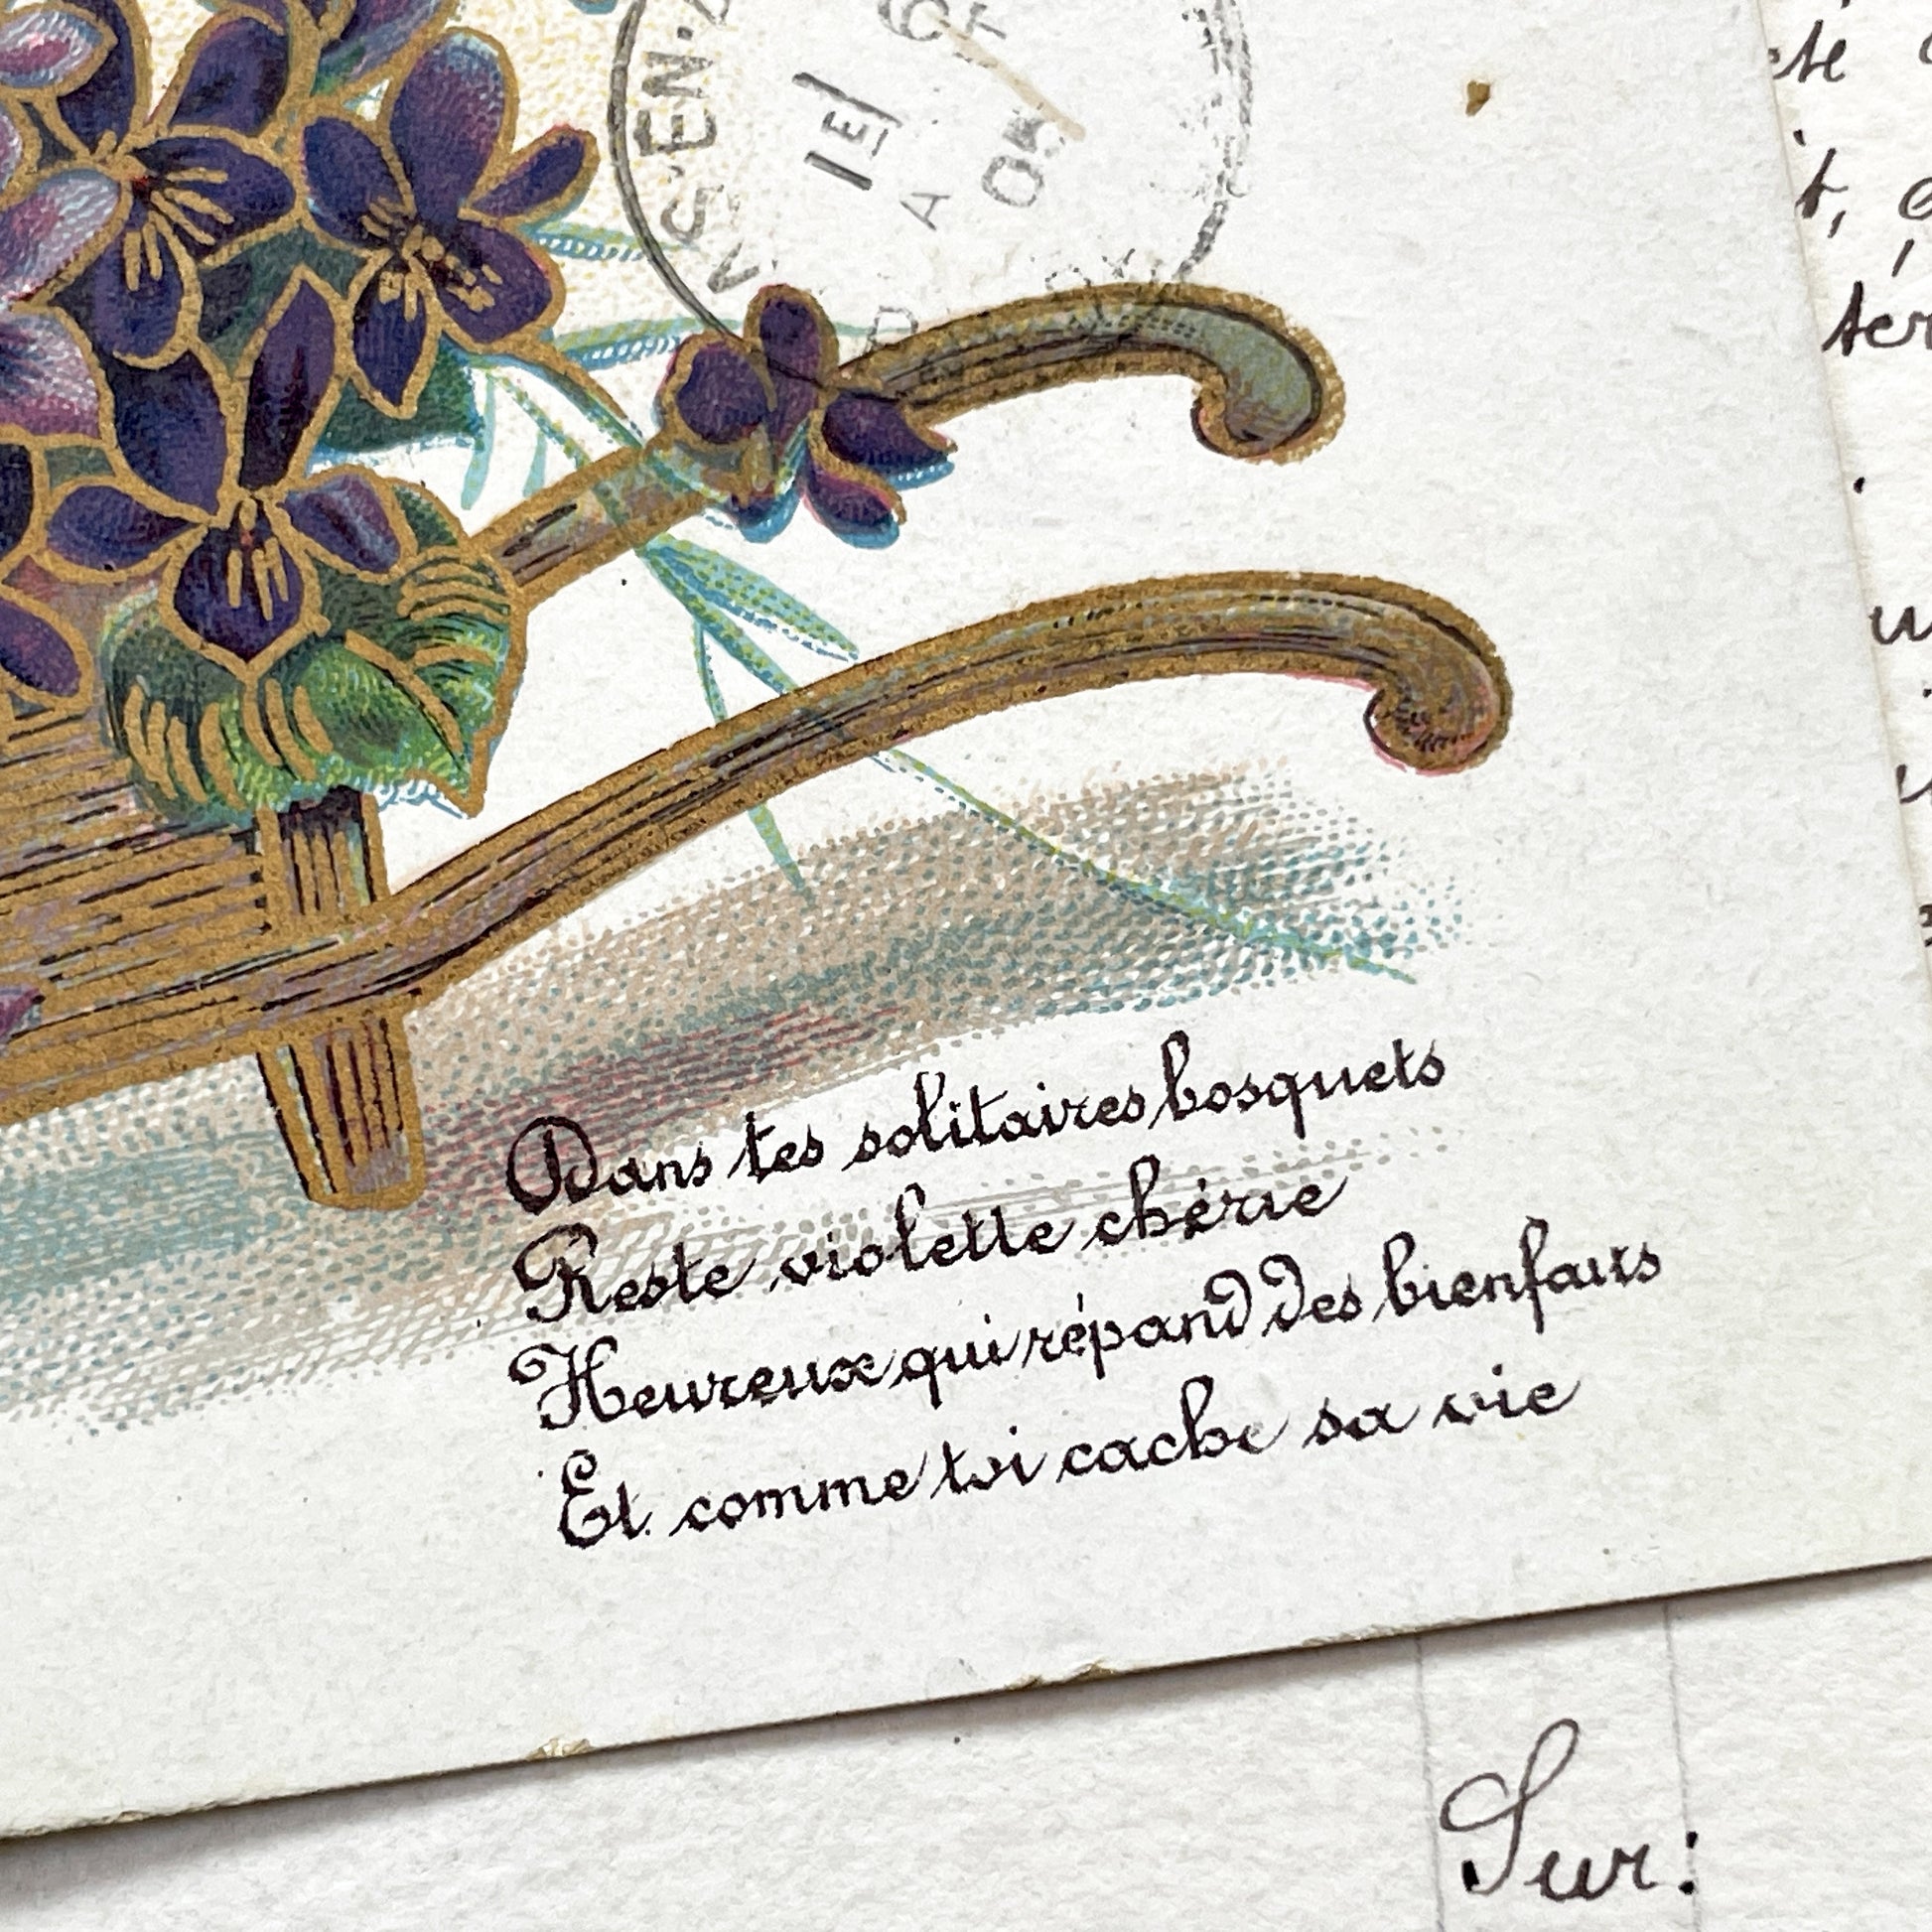 G-EN-
1E
6
A
05
Dans tes solitaires bosquets
Reste violette chérie
Heureux qui répand des bienfaits
Et comme toi cache sa vie
Sur: